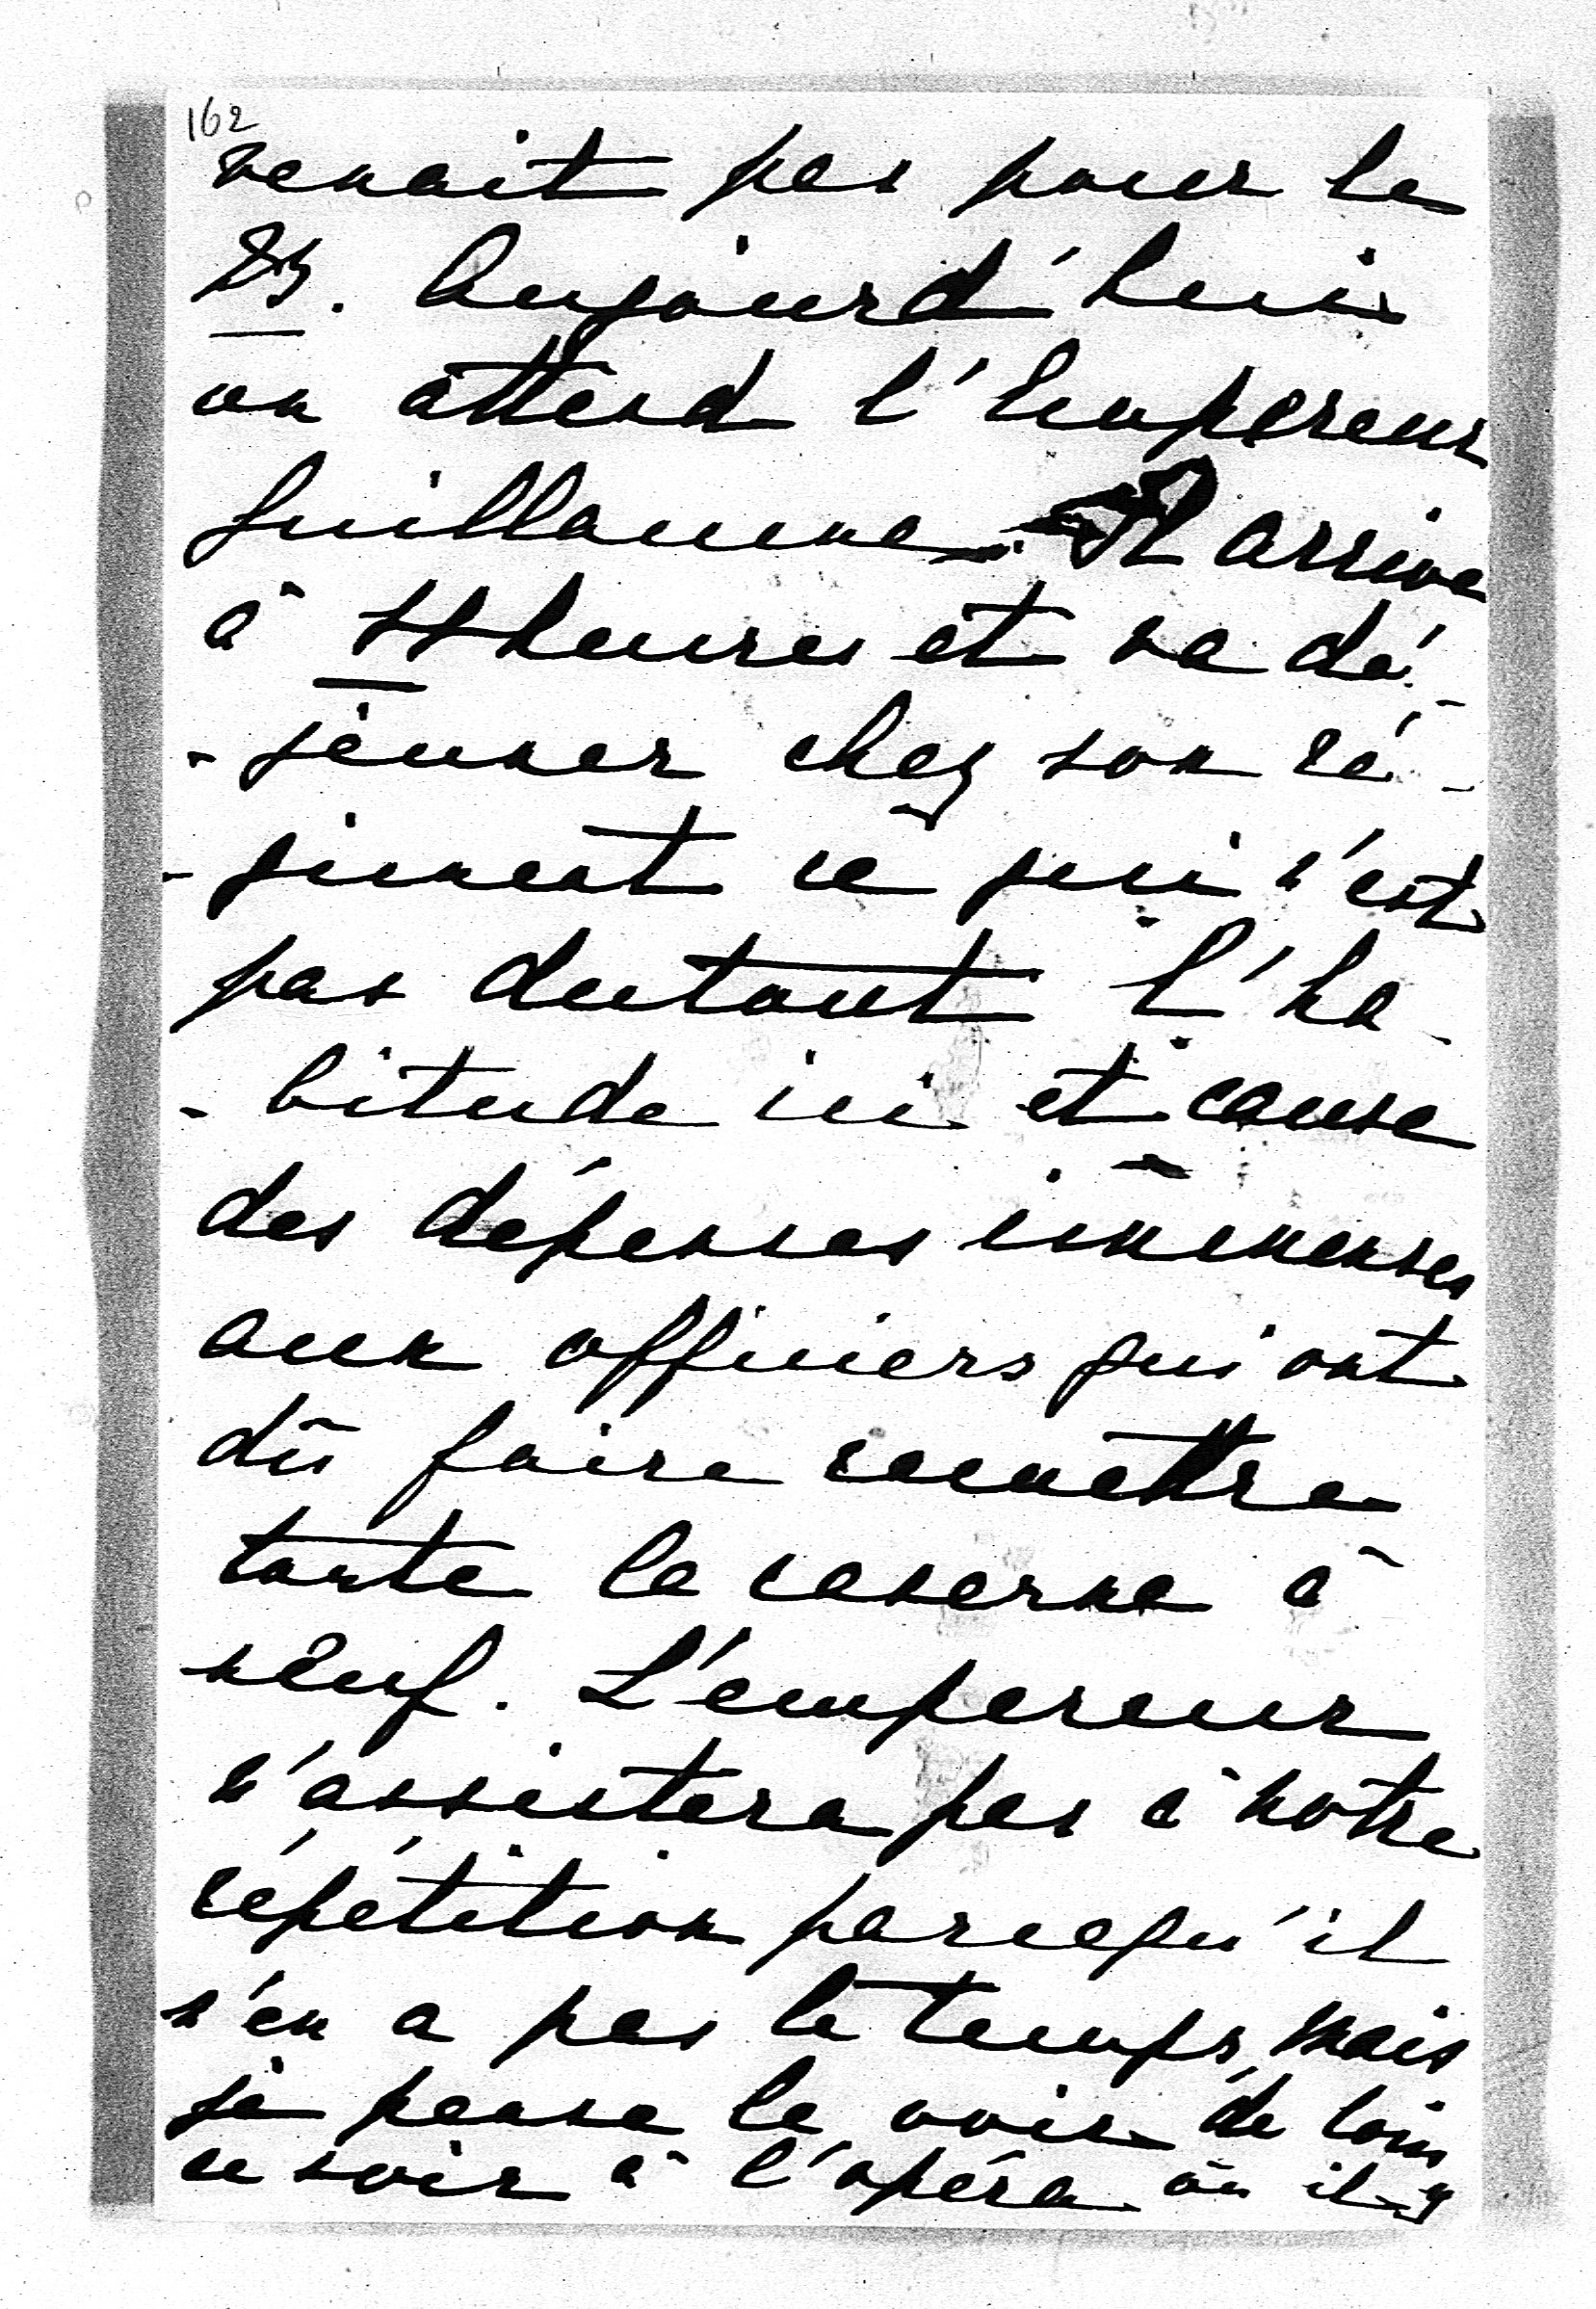 162
venait pas pour le
23. Aujourd'hui
on attend l'Empereur
Guillaume. Il arrive
à 11 heures et va dé-
-jeuner chez son ré-
-giment ce qui n'est
pas dutout l'ha-
-bitude ici et cause
des dépenses immenses
aux officiers qui ont
dû faire remettre
toute la caserne à
neuf. L'empereur
n'assistera pas à notre
répétition parcequ'il
n'en a pas le temps, mais
je pense le voir de loin
ce soir à l'opéra où il y